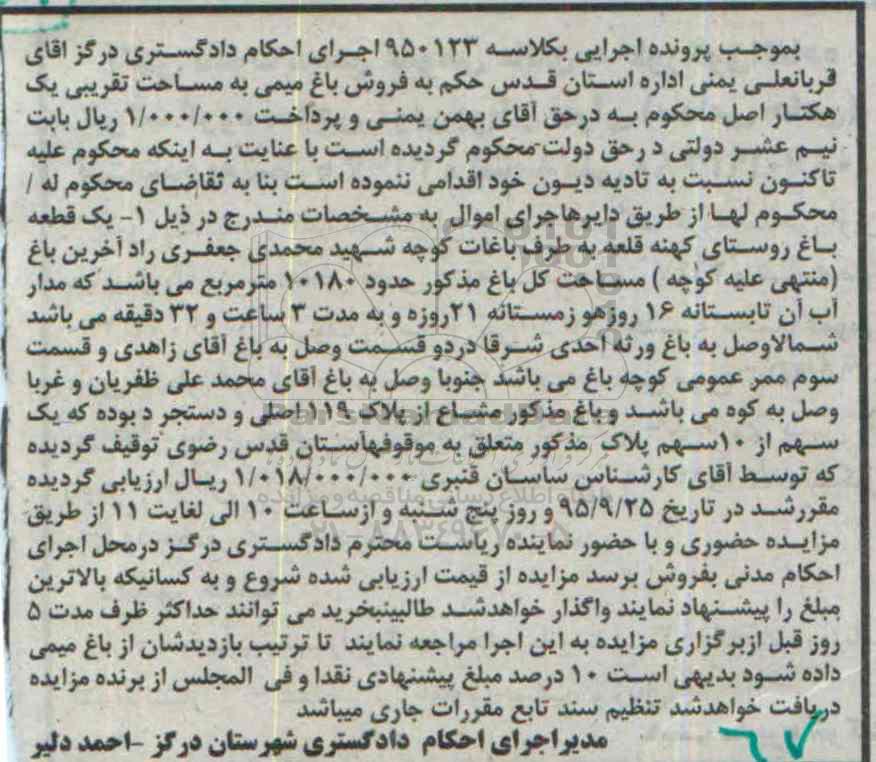 بموجب پرونده اجرایی بکلاسه ۹۵۰۱۲۳ اجرای احکام دادگستری درگز اقای
قربانعلی یمنی اداره استان قدس حکم به فروش باغ میمی به مساحت تقریبی یک
هکتار اصل محکوم به درحق آقای بهمن یمنی و پرداخت ۱/۰۰۰/۰۰۰ ریال بابت
نیم عشر دولتی د رحق دولت محکوم گردیده است با عنایت به اینکه محکوم علیه
تاکنون نسبت به تادیه دیون خود اقدامی ننموده است بنا به تقاضای محکوم له /
محکوم لها از طریق دایرهاجرای اموال به مشخصات مندرج در ذیل ۱- یک قطعه
باغ روستای کهنه قلعه به طرف باغات کوچه شهید محمدی جعفری راد آخرین باغ
(منتهی علیه کوچه ) مساحت کل باغ مذکور حدود ۱۰۱۸۰ مترمربع می باشد که مدار
آب آن تابستانه ۱۶ روزهو زمستانه ۲۱روزه و به مدت ۳ ساعت و ۳۲ دقیقه می باشد
شمالاوصل به باغ ورثه احدی شرقا دردو قسمت وصل به باغ آقای زاهدی و قسمت
سوم ممر عمومی کوچه باغ می باشد جنوبا وصل به باغ آقای محمد علی ظفریان و غربا
وصل به کوه می باشد و باغ مذکور مشاع از پلاک ۱۱۹ اصلی و دستجر د بوده که یک
سهم از ۱۰سهم پلاک مذکور متعلق به موقوفهآستان قدس رضوی توقیف گردیده
که توسط آقای کارشناس ساسان قنبری ۱/۰۱۸/۰۰۰/۰۰۰ ریال ارزیابی گردیده
مقررشد در تاریخ ۹۵/۹/۲۵ و روز پنج شنبه و ازساعت ۱۰ الی لغایت ۱۱ از طریق
مزایده حضوری و با حضور نماینده ریاست محترم دادگستری درگز درمحل اجرای
احکام مدنی بفروش برسد مزایده از قیمت ارزیابی شده شروع و به کسانیکه بالاترین
مبلغ را پیشنهاد نمایند واگذار خواهدشد طالبینبخرید می توانند حداکثر ظرف مدت ۵
روز قبل ازبرگزاری مزایده به این اجرا مراجعه نمایند تا ترتیب بازدیدشان از باغ میمی
داده شود بدیهی است ۱۰ درصد مبلغ پیشنهادی نقدا و فی المجلس از برنده مزایده
دریافت خواهدشد تنظیم سند تابع مقررات جاری میباشد
مدیراجرای احکام دادگستری شهرستان درگز -احمد دلیر
۶۷